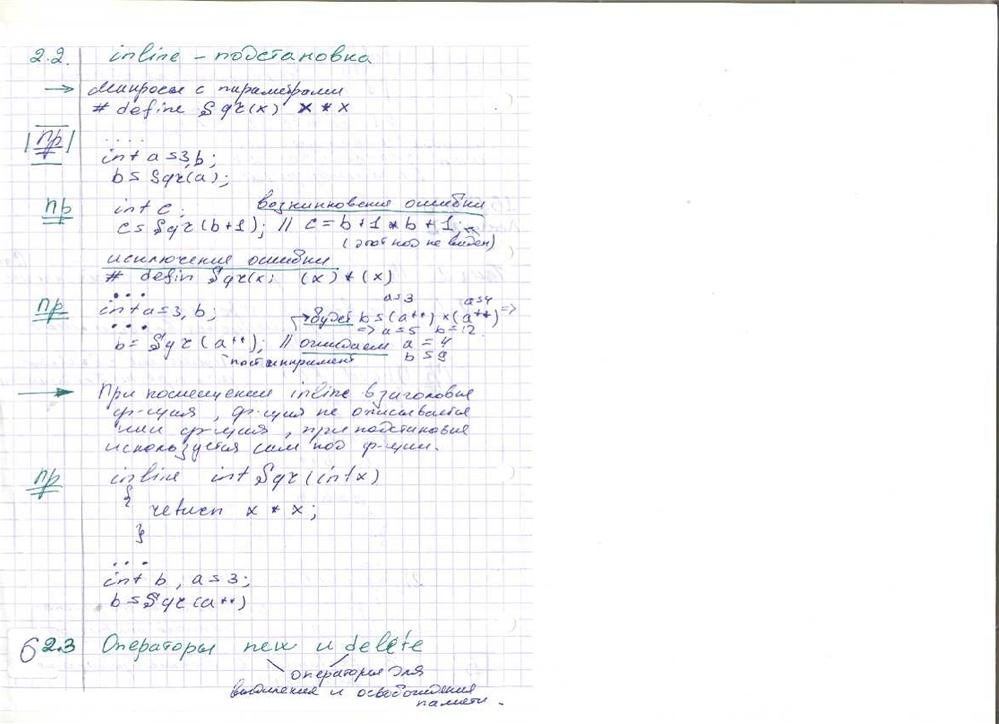 2.2. inline – подстановка
→ Макросы с параметрами
# define Sqr(x) x * x
|пр| ....
int a = 3, b;
b = Sqr(a);
пр int c; возникновение ошибки
c = Sqr(b+1); // c = b+1 * b+1;
(этот код не виден)
исключение ошибки
# defin Sqr(x; (x) * (x)
...
a=3 a=4
пр int a=3, b; → будет b = (a++) * (a++) =>
... => a=5 b=12
b = Sqr(a++); // ожидаем a = 4
постинкримент b = 9
→ При помещении inline в заголовке
ф-ция, ф-ция не описывается
или ф-ция, при подстановке
используется сам код ф-ции.
пр inline int Sqr(int x)
{
return x * x;
}
...
int b, a = 3;
b = Sqr(a++)
6 2.3 Операторы new и delete
операторы для
выделения и освобождения
памяти.